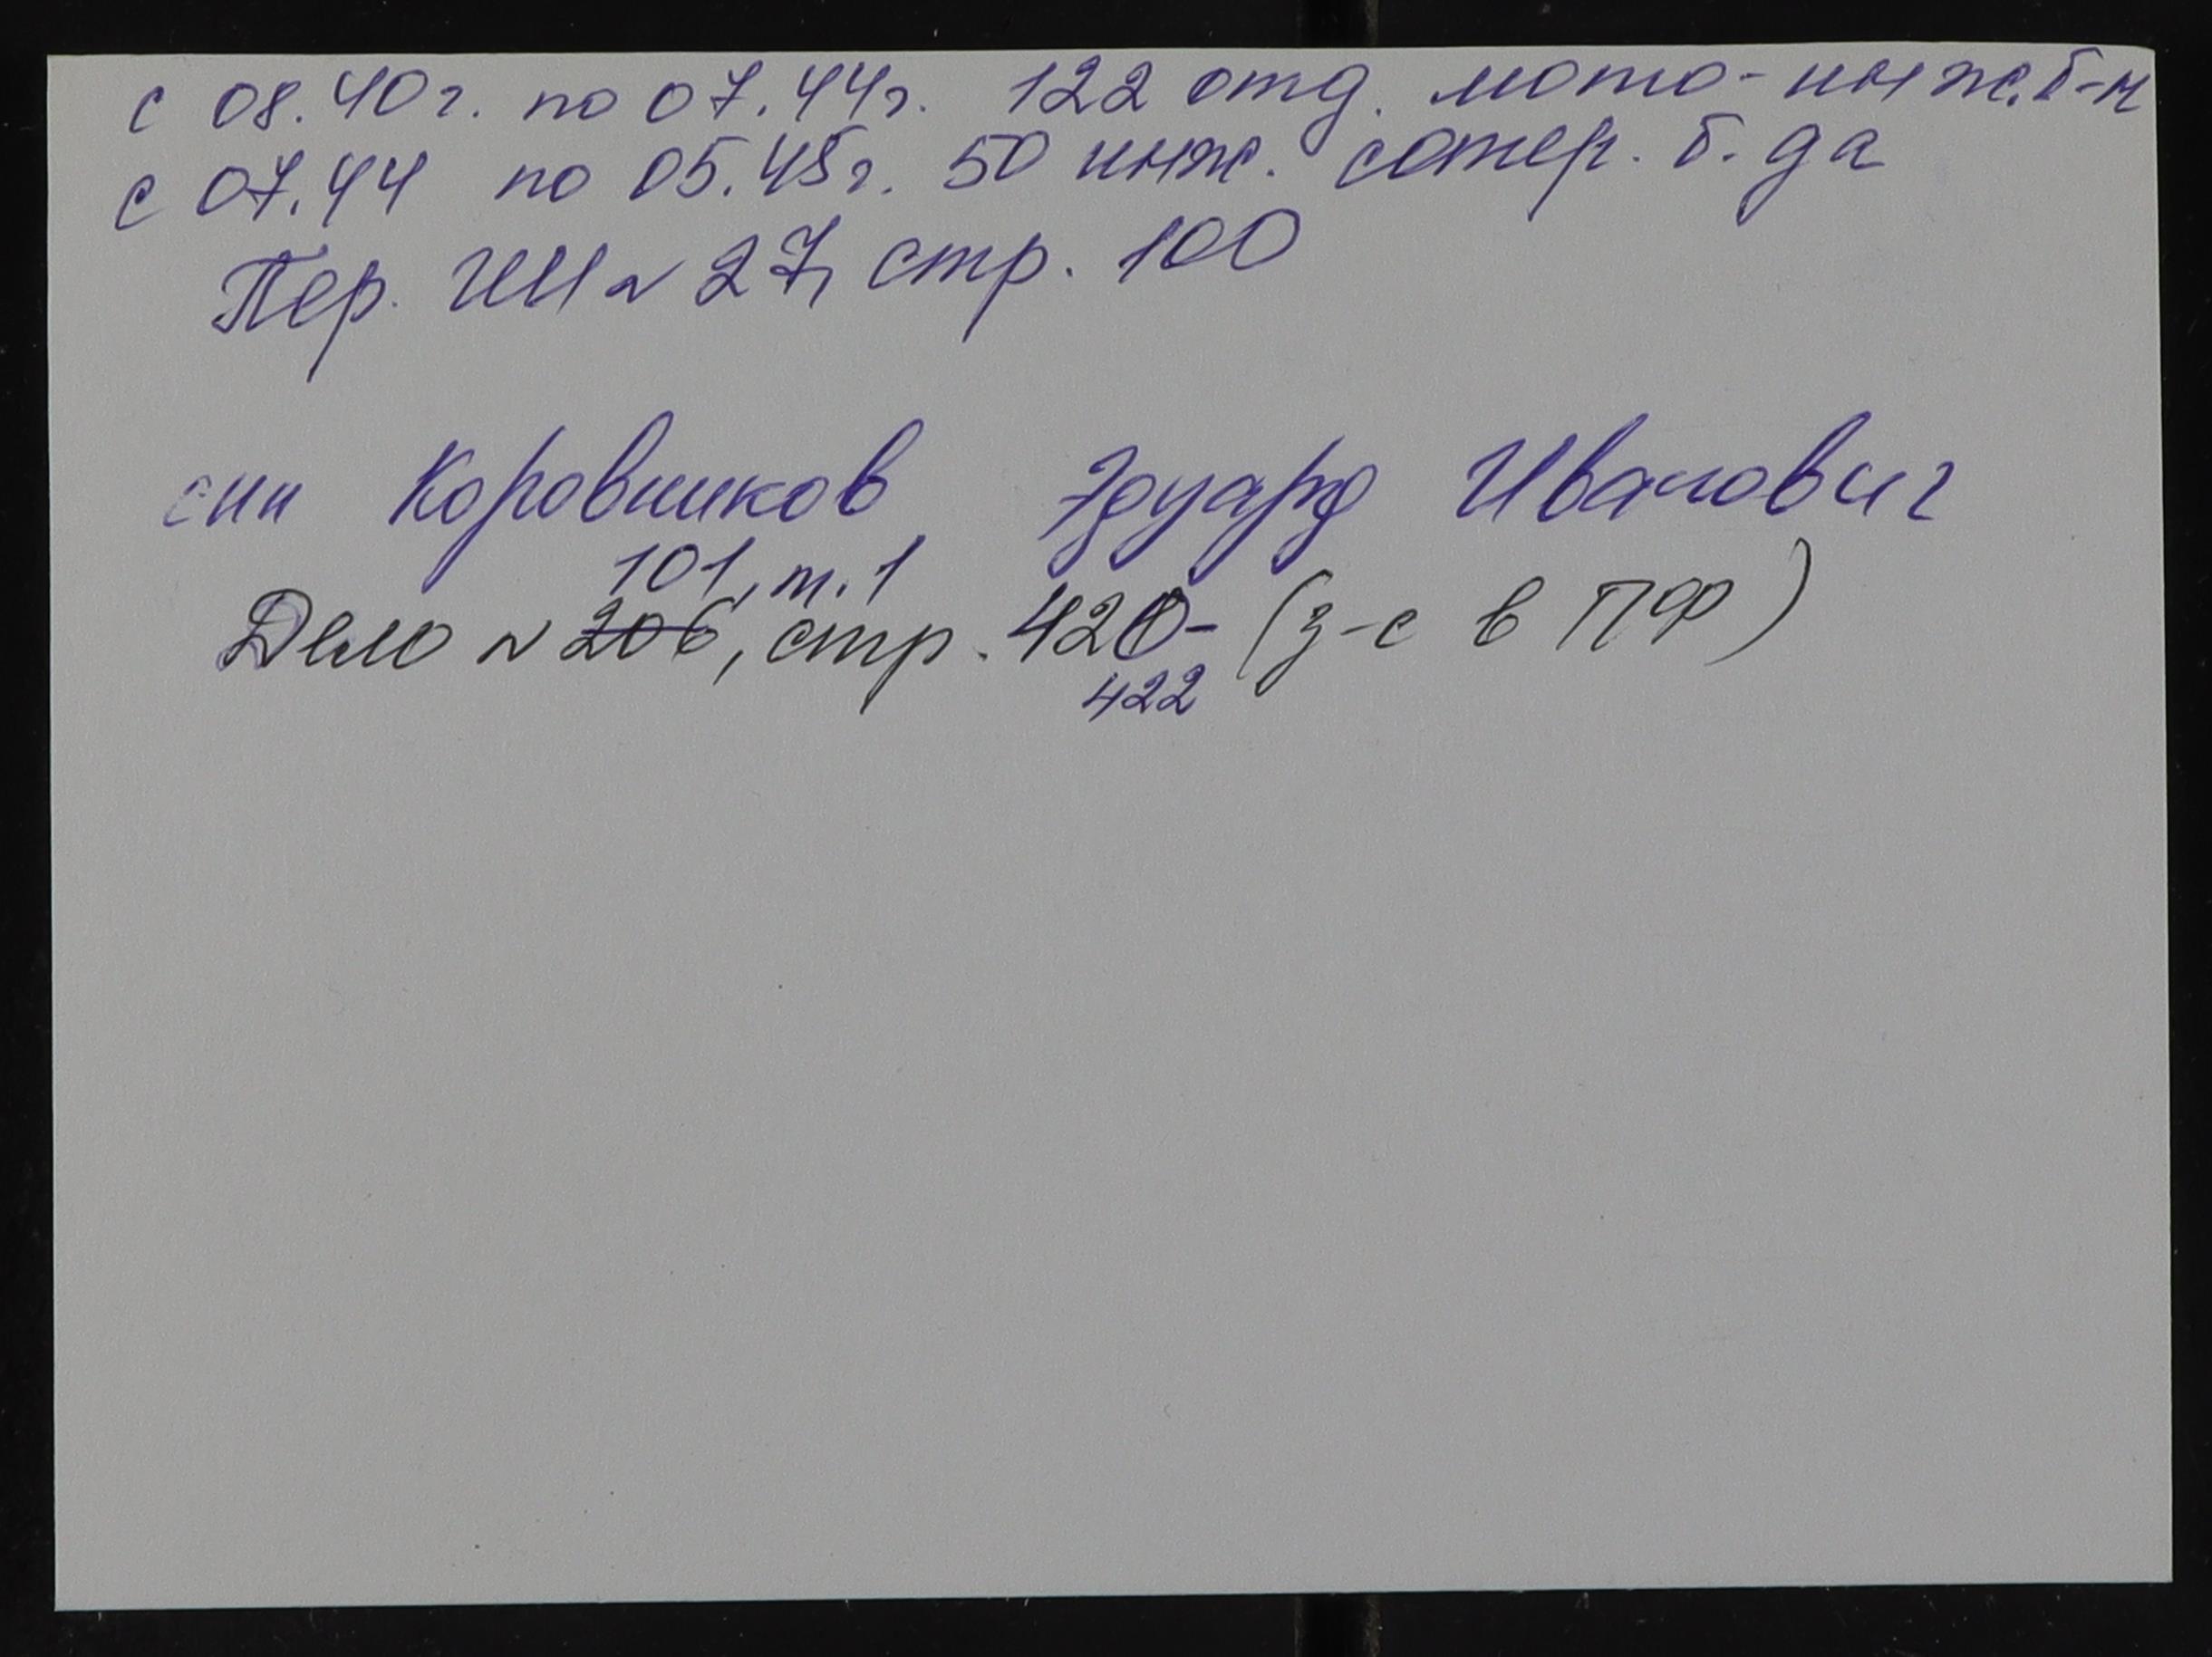 с 08.40г. по 07.44г. 122 отд. мото-инж.б-н
с 07.44 по 05.45г. 50 инж. сапер. б.да
Пер. №27, стр. 100
Коровников Эдуард Иванович
101, т.1
Дело № 206, стр. 420- (з-с в ПФ)
422